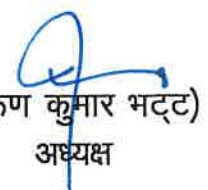 ण कुमार भट्ट)
अध्यक्ष